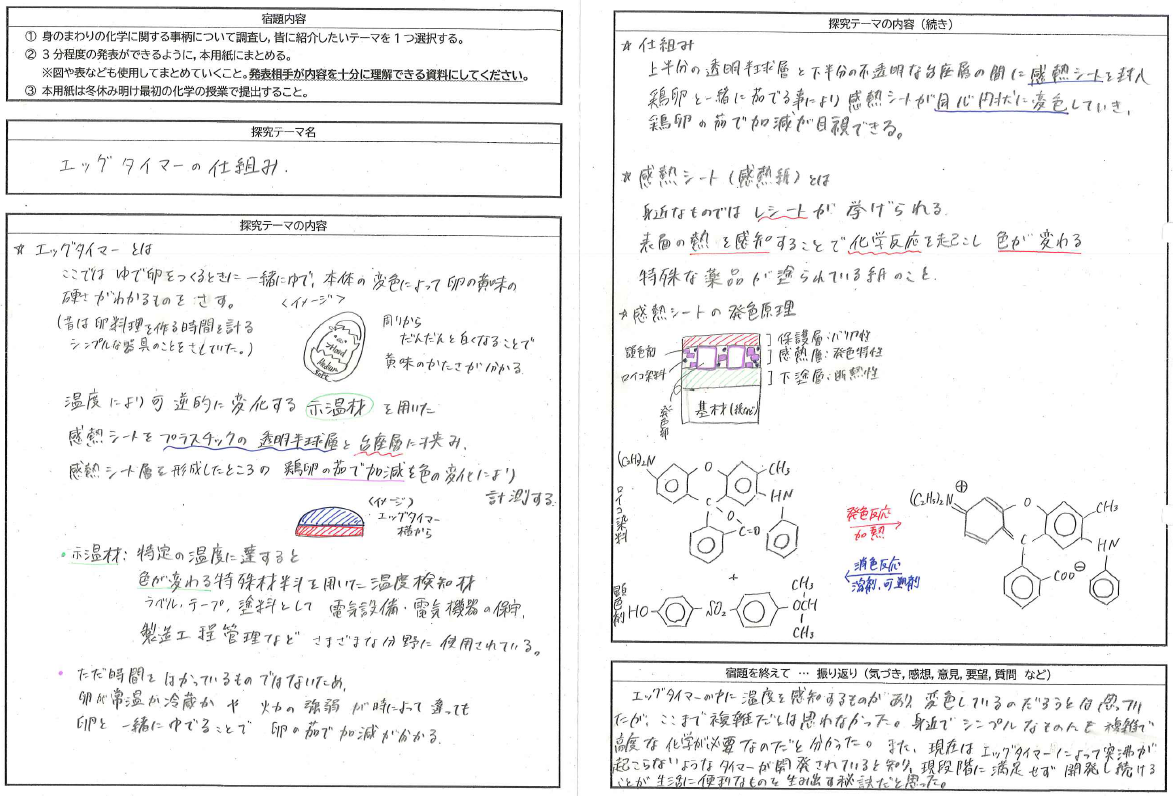 宿題内容
① 身のまわりの化学に関する事柄について調査し，皆に紹介したいテーマを１つ選択する。
② ３分程度の発表ができるように，本用紙にまとめる。
※図や表なども使用してまとめていくこと。発表相手が内容を十分に理解できる資料にしてください。
③ 本用紙は冬休み明け最初の化学の授業で提出すること。
探究テーマ名
エッグタイマーの仕組み.
探究テーマの内容
☆ エッグタイマーとは
ここでは ゆで卵をつくるときに一緒にゆで, 本体の変色によって卵の黄味の
硬さがわかるものをさす。
<イメージ>
(昔は卵料理を作る時間を計る
シンプルな器具のことをさしていた。)
Hard
Medium
Soft
周りから
だんだんと白くなることで
黄味のかたさが分かる.
温度により可逆的に変化する 示温材 を用いた
感熱シートをプラスチックの透明半球層と台座層に挟み.
感熱シート層を形成したところの 鶏卵の茹で加減を色の変化により
計測する.
<イメージ>
エッグタイマー
横から
・示温材: 特定の温度に達すると
色が変わる特殊材料を用いた温度検知材
ラベル・テープ, 塗料として 電気設備・電気機器の保守,
製造工程管理など さまざまな分野に使用されている。
・ただ時間をはかっているものではないため,
卵が常温か冷蔵か や 火力の強弱 が時によって違っても
卵と一緒にゆでることで 卵の茹で加減が分かる.
探究テーマの内容（続き）
☆ 仕組み
上半分の透明半球層と下半分の不透明な台座層の間に感熱シートを封入
鶏卵と一緒に茹でる事により感熱シートが同心円状に変色していき,
鶏卵の茹で加減が目視できる。
☆ 感熱シート(感熱紙)とは
身近なものではレシートが挙げられる.
表面の熱を感知することで化学反応を起こし 色が変わる
特殊な薬品が塗られている紙のこと.
☆ 感熱シートの発色原理
顕色剤
ロイコ染料
発色部
保護層:バリア性
感熱層:発色特性
下塗層:断熱性
基材(紙など)
ロイコ染料
(C₂H₅)₂N
O
CH₃
C
HN
O
C=O
発色反応
加熱
消色反応
溶剤, 可塑剤
(C₂H₅)₂N
⊕
O
CH₃
C
HN
COO⊖
+
顕色剤
HO
SO₂
CH₃
OCH
CH₃
宿題を終えて … 振り返り（気づき, 感想, 意見, 要望, 質問 など）
エッグタイマーの中に温度を感知するものがあり 変色しているのだろうとは思ってい
たが, ここまで複雑だとは思わなかった。身近でシンプルなものも複雑で
高度な化学が必要なのだと分かった。また, 現在はエッグタイマーによって突沸が
起こらないようなタイマーが開発されていると知り, 現段階に満足せず 開発し続ける
ことが生活に便利なものを生み出す秘訣だと思った。